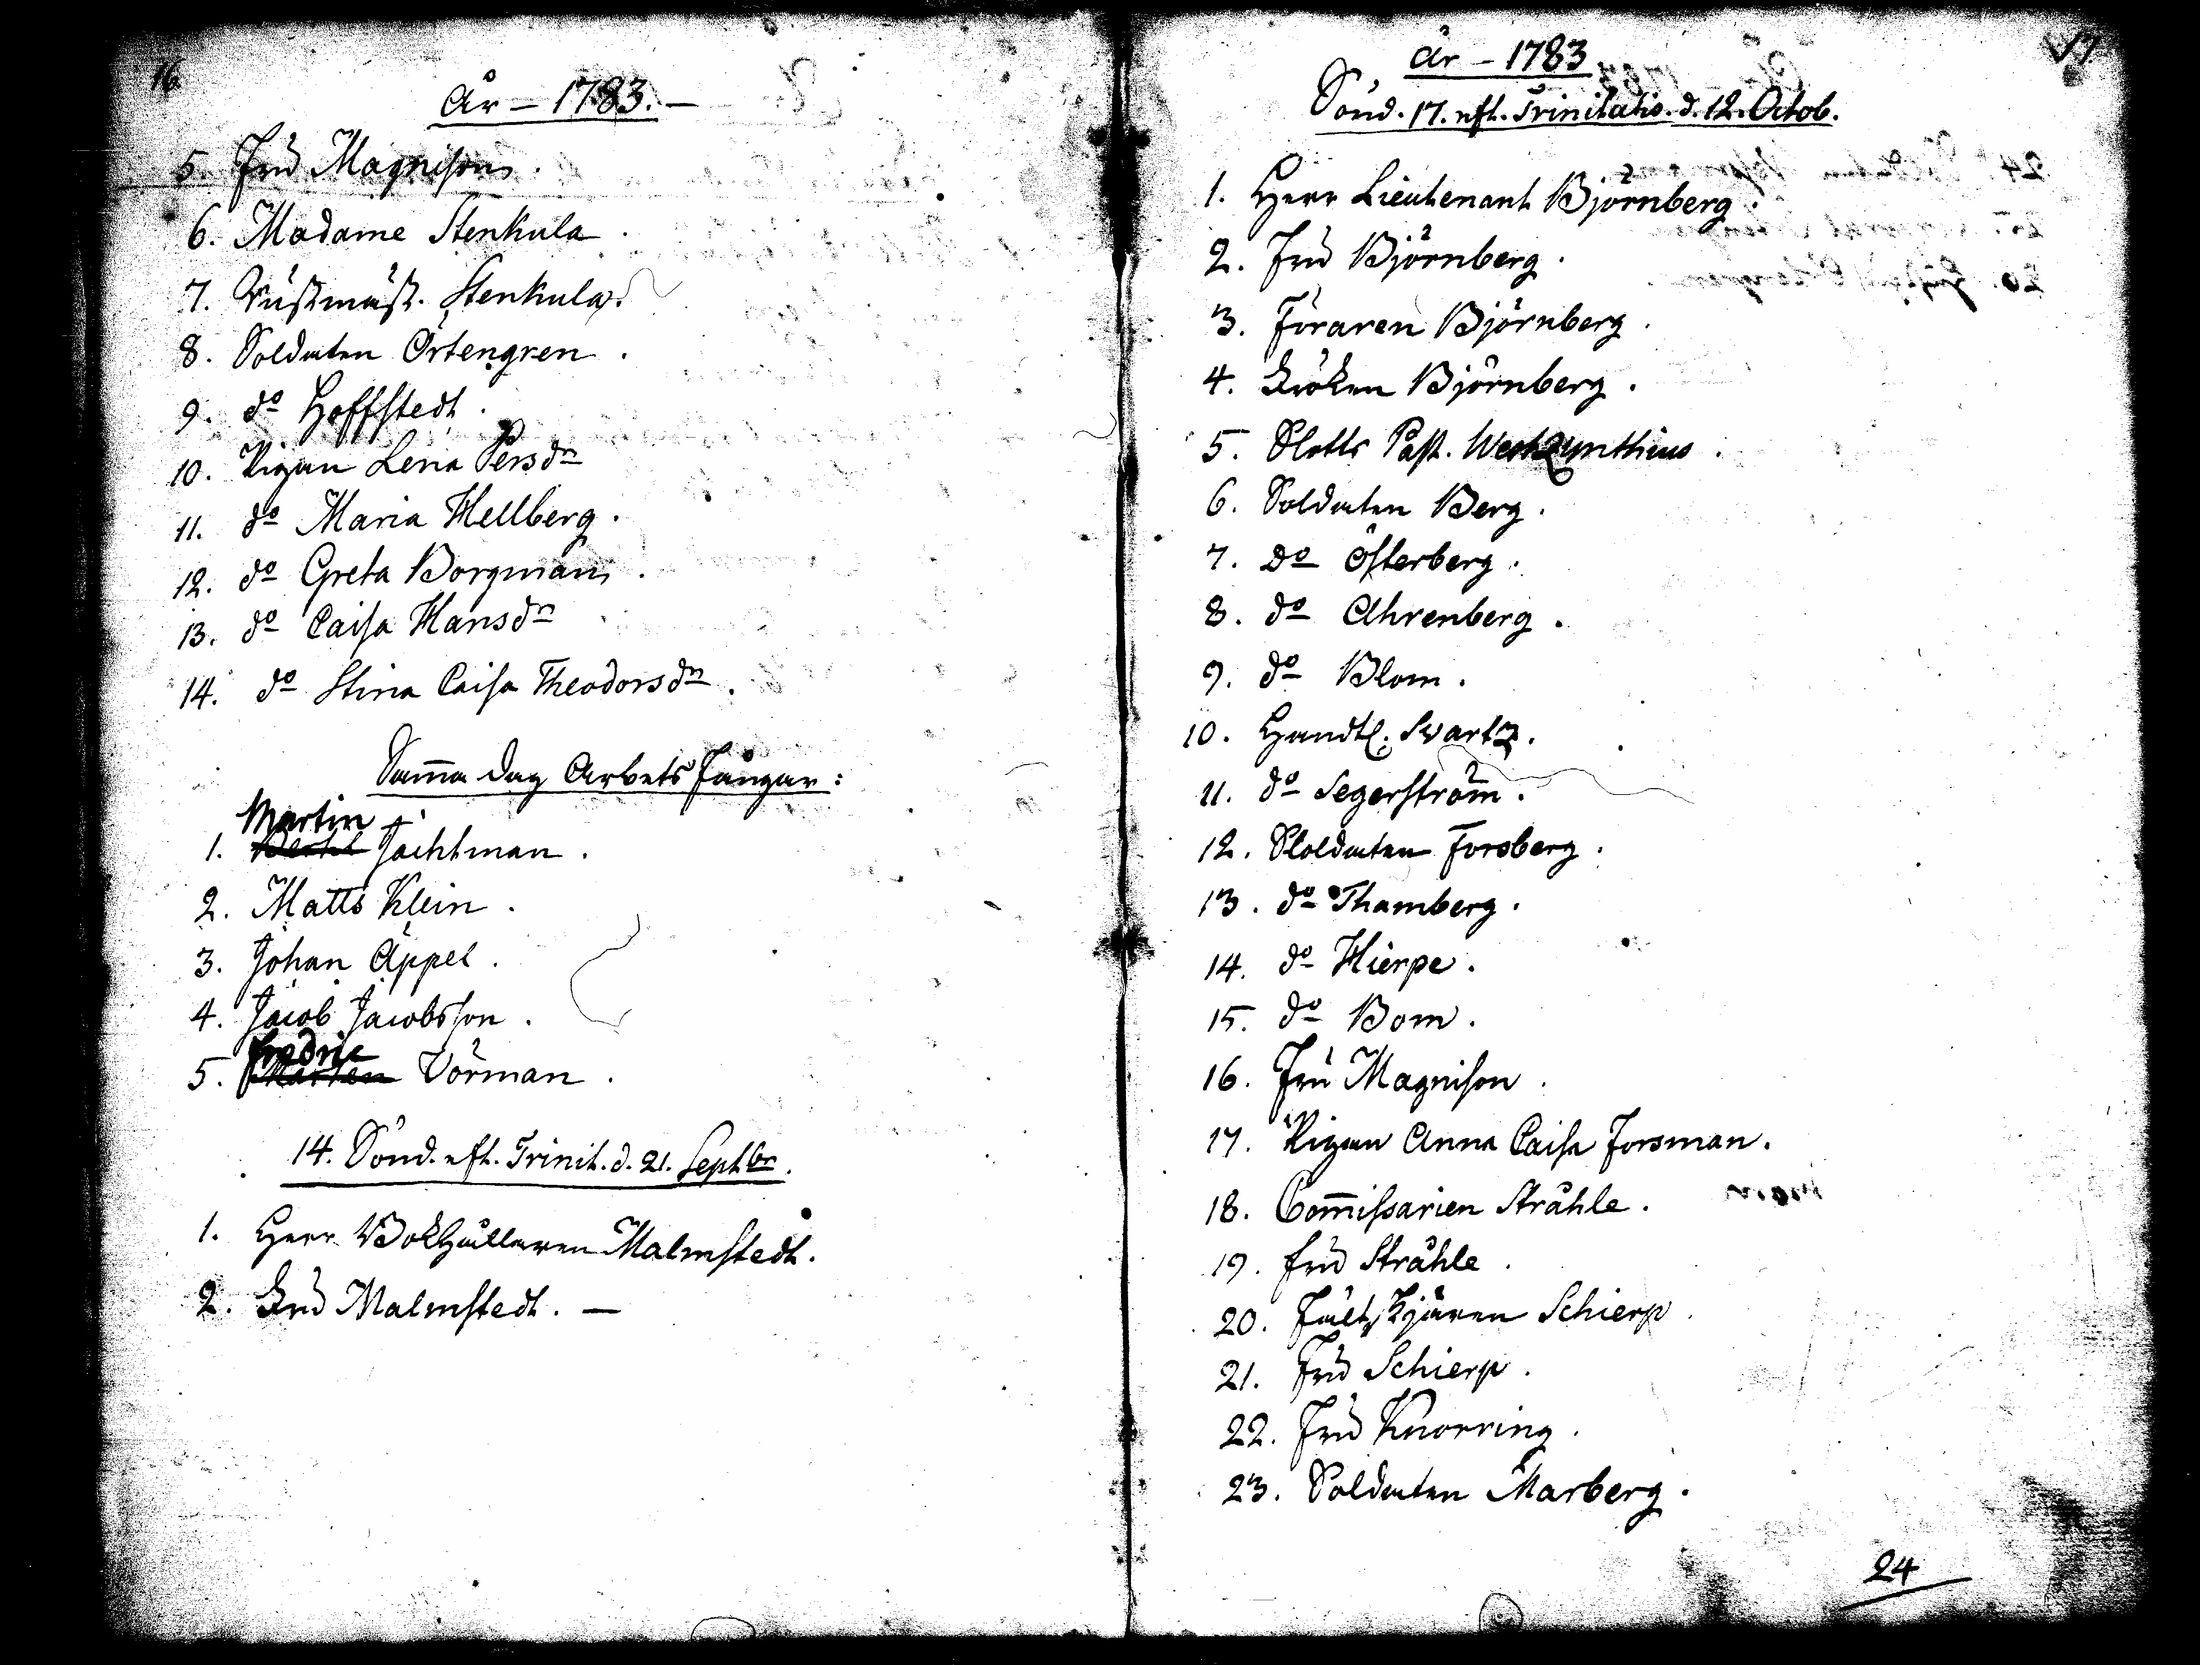 16
År – 1783. –
5. Fru Magnison.
6. Madame Stenkula.
7. Rustmäst. Stenkula.
8. Soldaten Örtengren.
9. do Hoffstedt.
10. Pigan Lena Persdn
11. do Maria Hellberg.
12. do Greta Borgman.
13. do Caisa Hansdn
14. do Stina Caisa Theodorsdn.
Samma dag Arbets Fångar:
Martin
1. Bertil Jachtman.
2. Matts Klein.
3. Johan Äppel.
4. Jacob Jacobsson.
Fredric
5. Mårten Vörman.
14. Sönd. eft. Trinit. d. 21. Septbr.
1. Herr Bokhållaren Malmstedt.
2. Fru Malmstedt. –
17
År – 1783
Sönd. 17. eft. Trinitatis. d. 12. Octob.
1. Herr Lieutenant Björnberg.
2. Fru Björnberg.
3. Föraren Björnberg.
4. Fröken Björnberg.
5. Slotts Past. Westzynthius.
6. Soldaten Berg.
7. Do Österberg.
8. do Ahrenberg.
9. do Blom.
10. Handtl. Svartz.
11. do Segerström.
12. Soldaten Forsberg.
13. do Thamberg.
14. do Hierpe.
15. do Bom.
16. Fru Magnison.
17. Pigan Anna Caisa Forsman.
18. Commissarien Stråhle.
19. Fru Stråhle.
20. Fältskjären Schierp.
21. Fru Schierp.
22. Fru Knorring.
23. Soldaten Marberg.
24